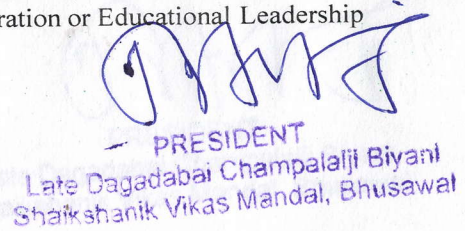 ration or Educational Leadership
PRESIDENT
Late Dagadabai Champalalji Biyani
Shaikshanik Vikas Mandal, Bhusawal